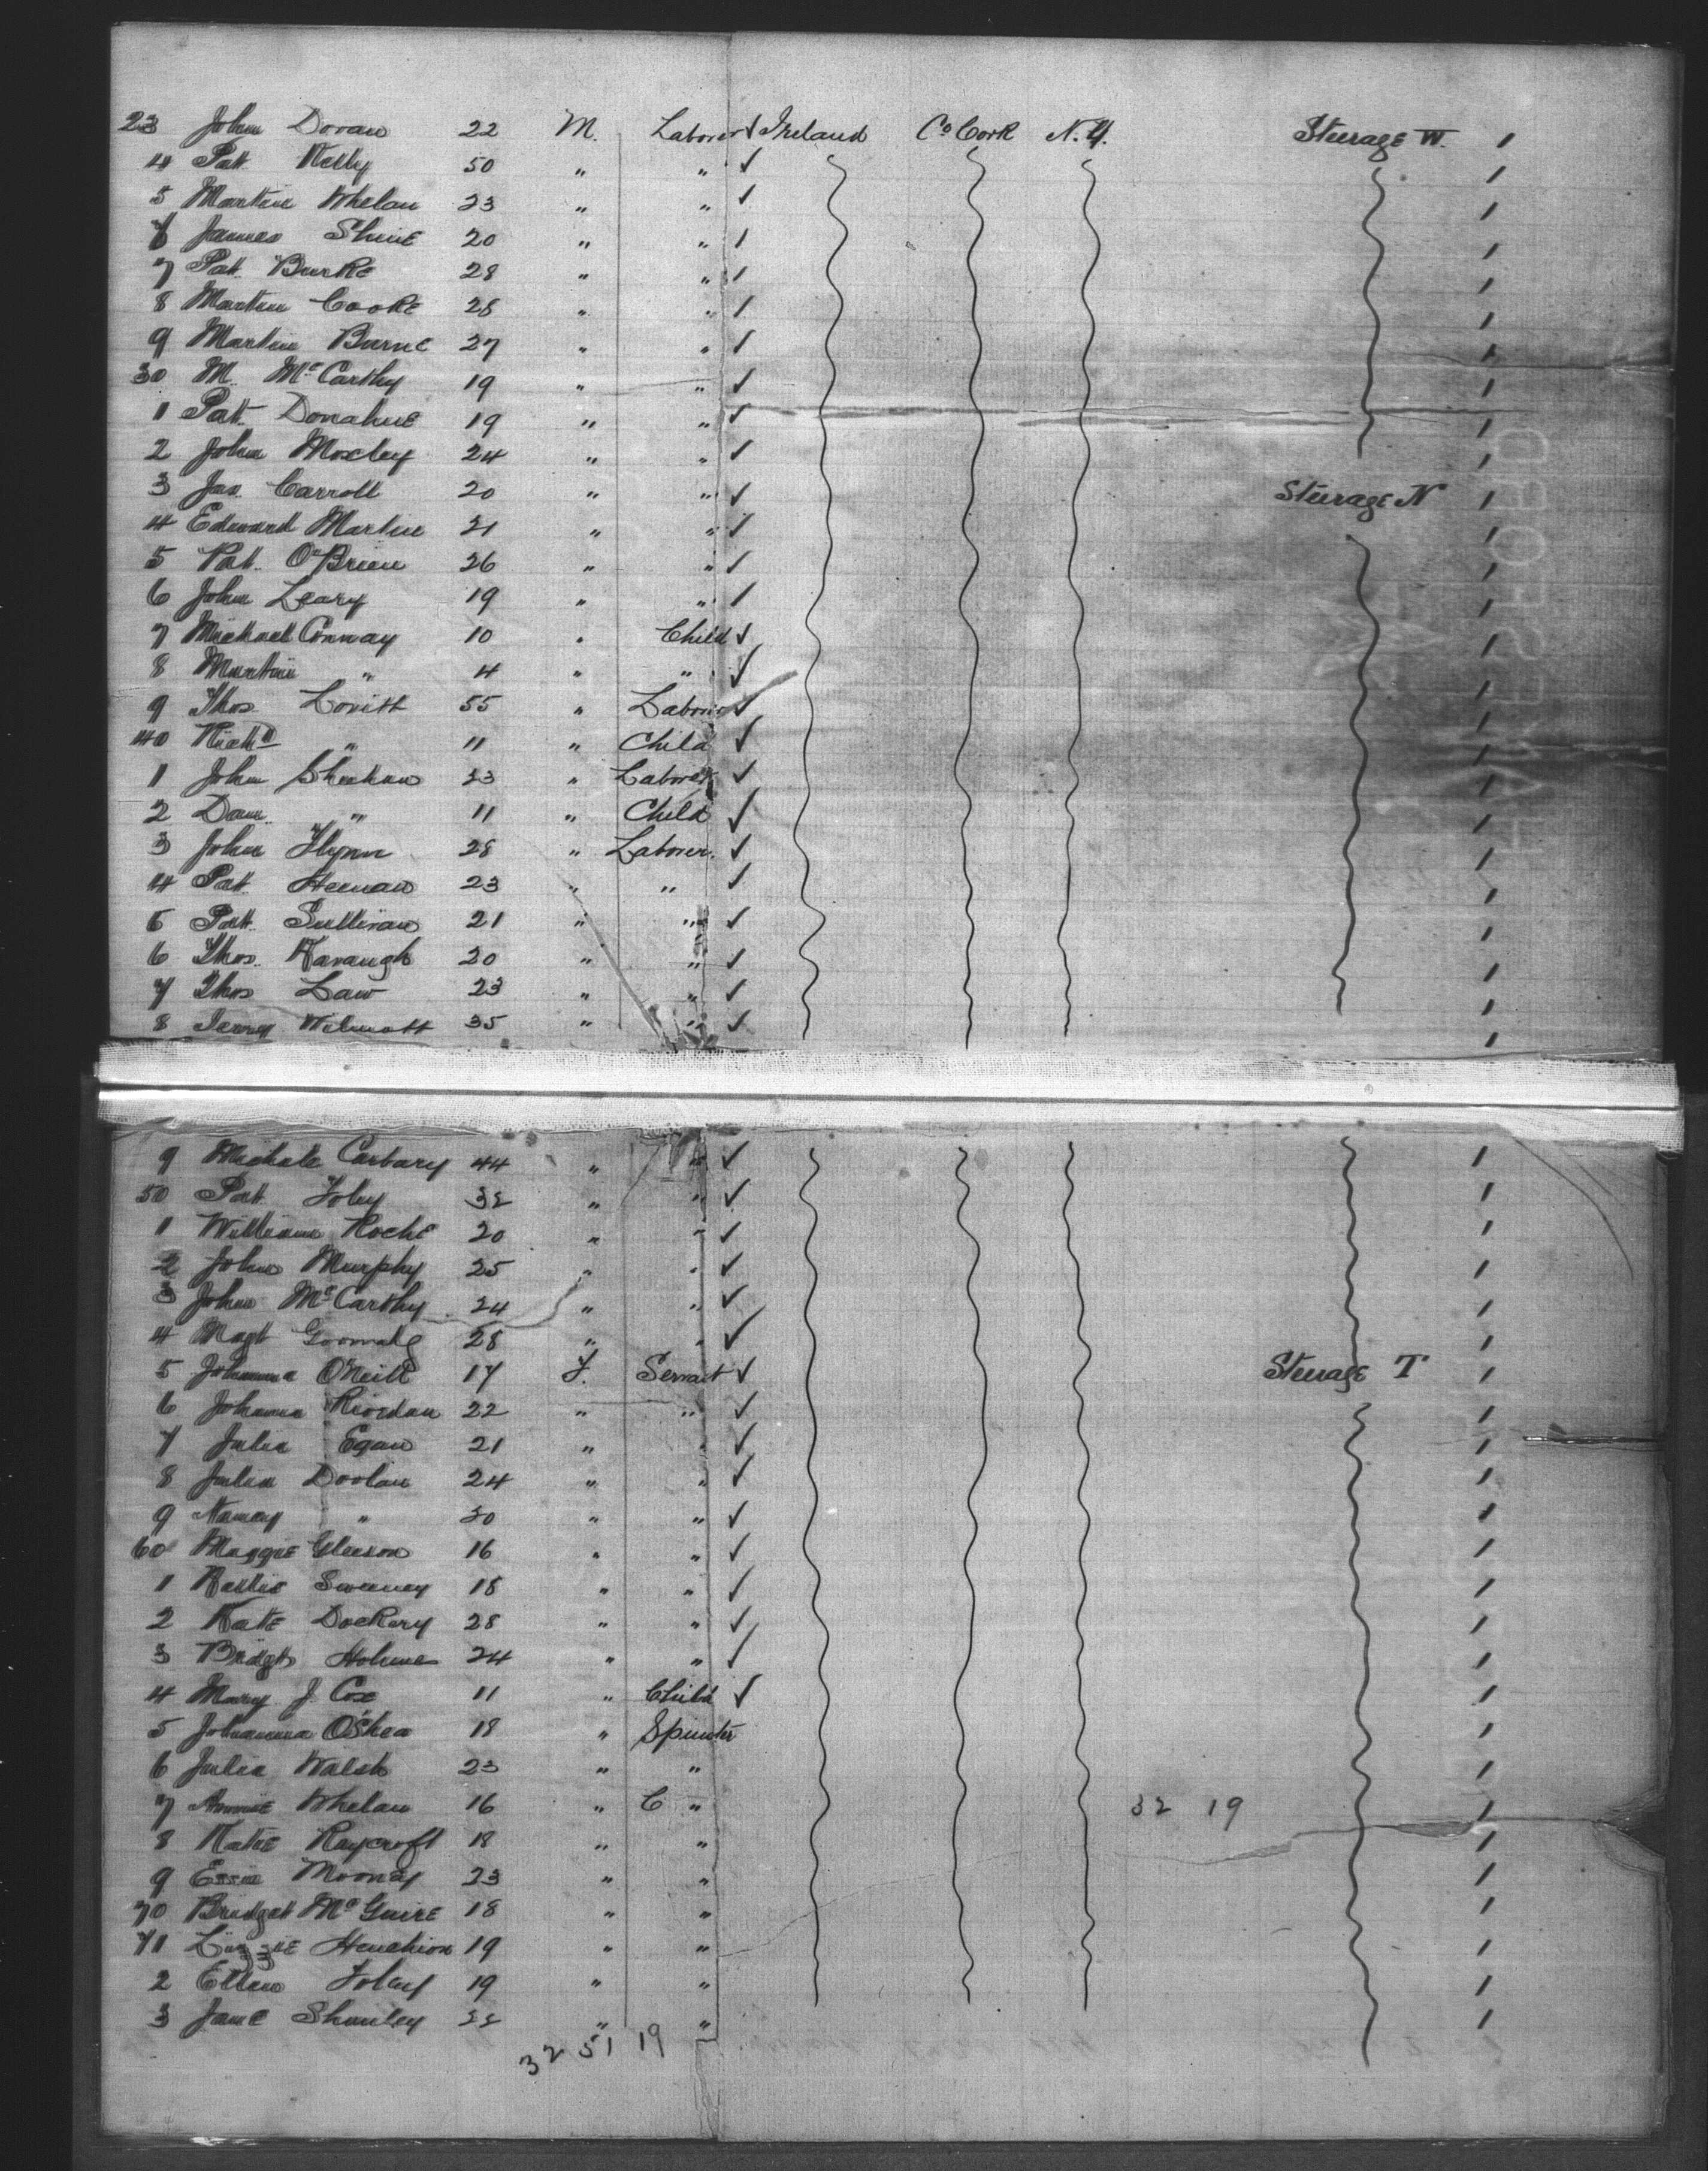 23 John Doran 22 M. Laborer Ireland Co Cork N.Y. Steerage W. 1
4 Pat. Kelly 50 " " 1
5 Martin Whelan 23 " " 1
6 James Shine 20 " " 1
7 Pat. Burke 28 " " 1
8 Martin Cooke 28 " " 1
9 Martin Burne 27 " " 1
30 M. McCarthy 19 " " 1
1 Patk Donahue 19 " " 1
2 John Moxley 24 " " 1
3 Jas. Carroll 20 " " Steerage N 1
4 Edward Martin 21 " " 1
5 Pat. O'Brien 26 " " 1
6 John Leary 19 " " 1
7 Michael Conway 10 " Child 1
8 Martin " 4 " " 1
9 Thos Lovitt 55 " Laborer 1
40 Richd " 11 " Child 1
1 John Sheehan 33 " Laborer 1
2 Dan. " 11 " Child 1
3 John Flynn 28 " Laborer. 1
4 Pat. Heenan 23 " " 1
5 Pat. Sullivan 21 " " 1
6 Thos. Kavaugh 20 " " 1
7 Thos Law 23 " " 1
8 Jerry Wilmott 35 " " 1
9 Michale Carbary 44 " " 1
50 Pat. Foley 32 " " 1
1 William Roche 20 " " 1
2 John Murphy 25 " " 1
3 John McCarthy 24 " " 1
4 28 " " 1
5 Johanna O'Neill 17 F. Servant Steerage T 1
6 Johanna Riordan 22 " " 1
7 Julia Egan 21 " " 1
8 Julia Doolan 24 " " 1
9 Nancy " 30 " " 1
60 Maggie Gleeson 16 " " 1
1 Sweeney 18 " " 1
2 Kate Dockery 28 " " 1
3 Bridgt Holmes 24 " " 1
4 Mary J. Cox 11 " Child 1
5 Johanna O'Shea 18 " Spinster 1
6 Julia Walsh 23 " " 1
7 Annie Whelan 16 " C " 32 19 1
8 Katie Raycroft 18 " " 1
9 Essie Mooney 23 " " 1
70 Bridget McGuire 18 " " 1
71 Lizzie Henehion 19 " " 1
2 Ellen Foley 19 " " 1
3 Jane Shanley 22 " " 1
32 51 19